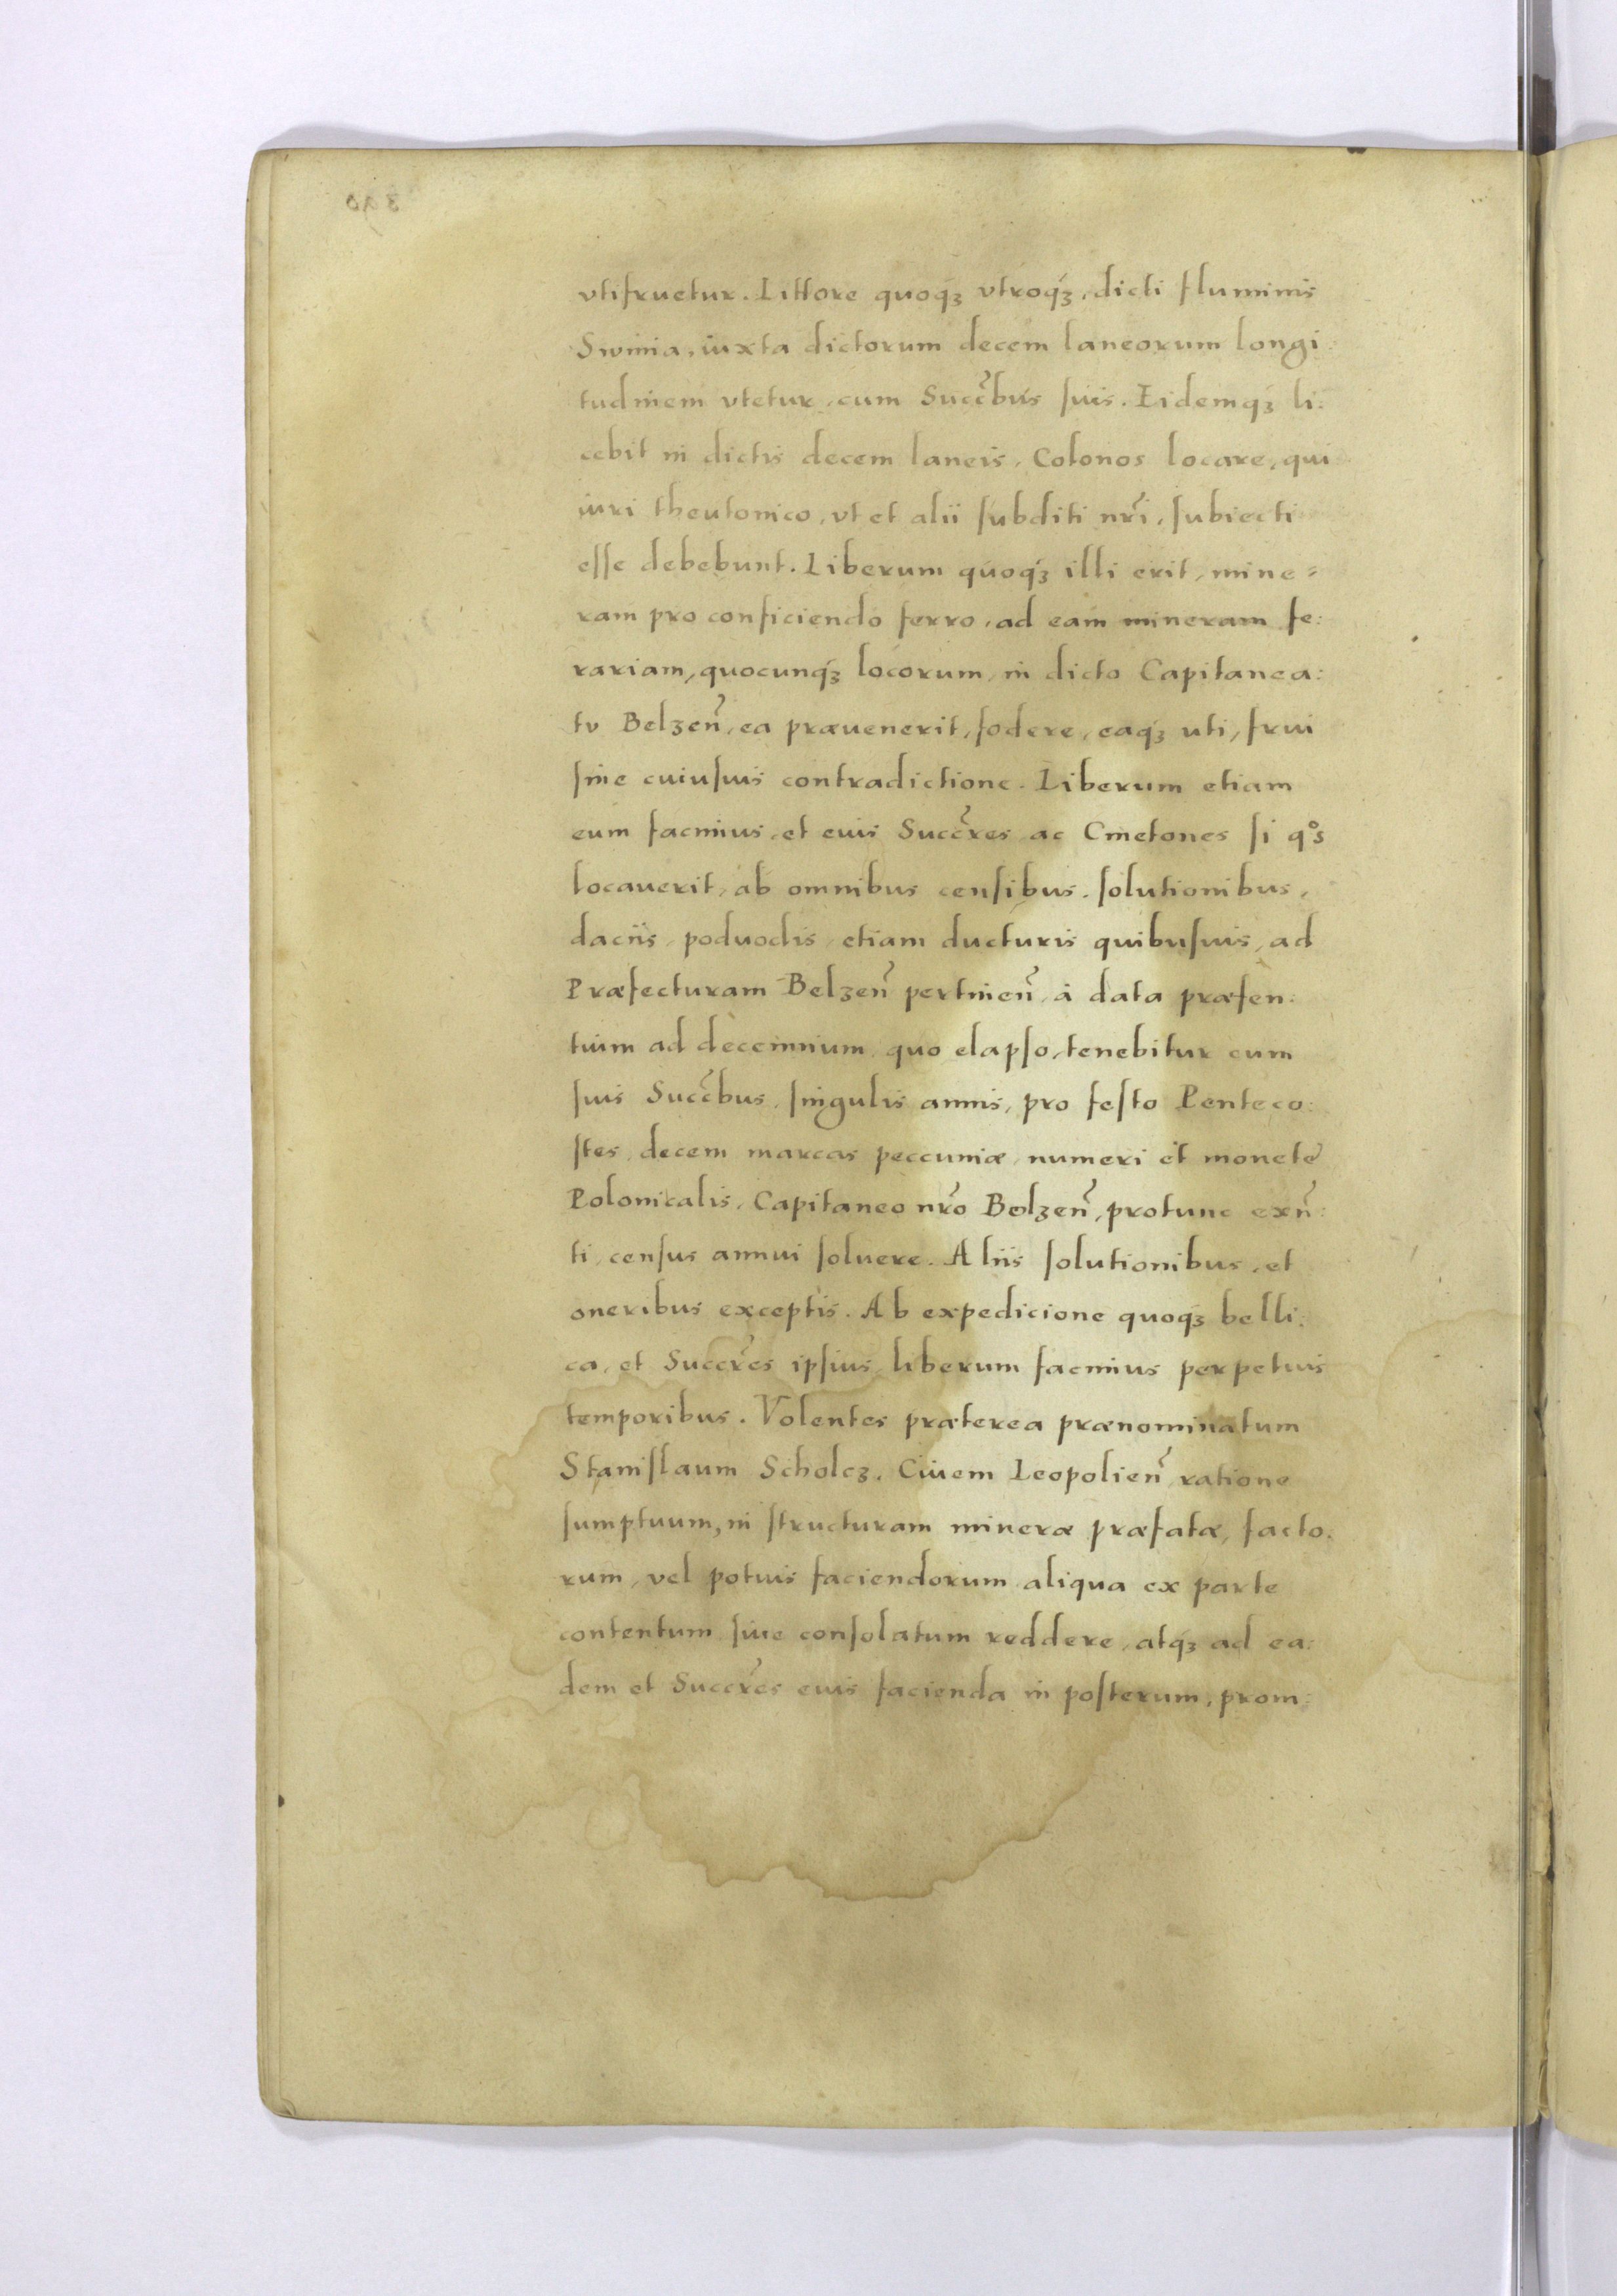 vtifruetur. Littore quoqꝫ vtroqꝫ, dicti fluminis
Swinia, iuxta dictorum decem laneorum longi
tudinem vtetur, cum Succ̃bus suis. Eidemqꝫ li:
cebit in dictis decem laneis, Colonos locare, qui
iuri theutonico, vt et alii subditi nr̃i, subiecti
esse debebunt. Liberum quoqꝫ illi erit, mine=
ram pro conficiendo ferro, ad eam mineram fe:
rariam, quocunqꝫ locorum, in dicto Capitanea:
tv Belzen̄, ea præuenerit, fodere, eaqꝫ uti, frui
sine cuiusuis contradictione. Liberum etiam
eum facimus, et eius Succr̃es ac Cmetones si qͦs
locauerit, ab omnibus censibus, solutionibus,
daciis, poduodis, etiam ducturis quibusuis, ad
Præfecturam Belzen̄ pertinen̄, à data præsen:
tium ad decennium, quo elapso, tenebitur cum
suis Succ̃bus, singulis annis, pro festo Penteco:
stes, decem marcas peccuniæ, numeri et monete
Polonicalis, Capitaneo nr̃o Belzen̄, protunc exn̄:
ti, census annui soluere. Aliis solutionibus, et
oneribus exceptis. Ab expedicione quoqꝫ belli:
ca, et Succr̃es ipsius, liberum facimus perpetuis
temporibus. Volentes præterea prænominatum
Stanislaum Scholcz, Ciuem Leopolien̄, ratione
sumptuum, in structuram mineræ præfatæ, facto:
rum, vel potius faciendorum aliqua ex parte
contentum siue consolatum reddere, atqꝫ ad ea:
dem et Succr̃es eius facienda in posterum, prom: